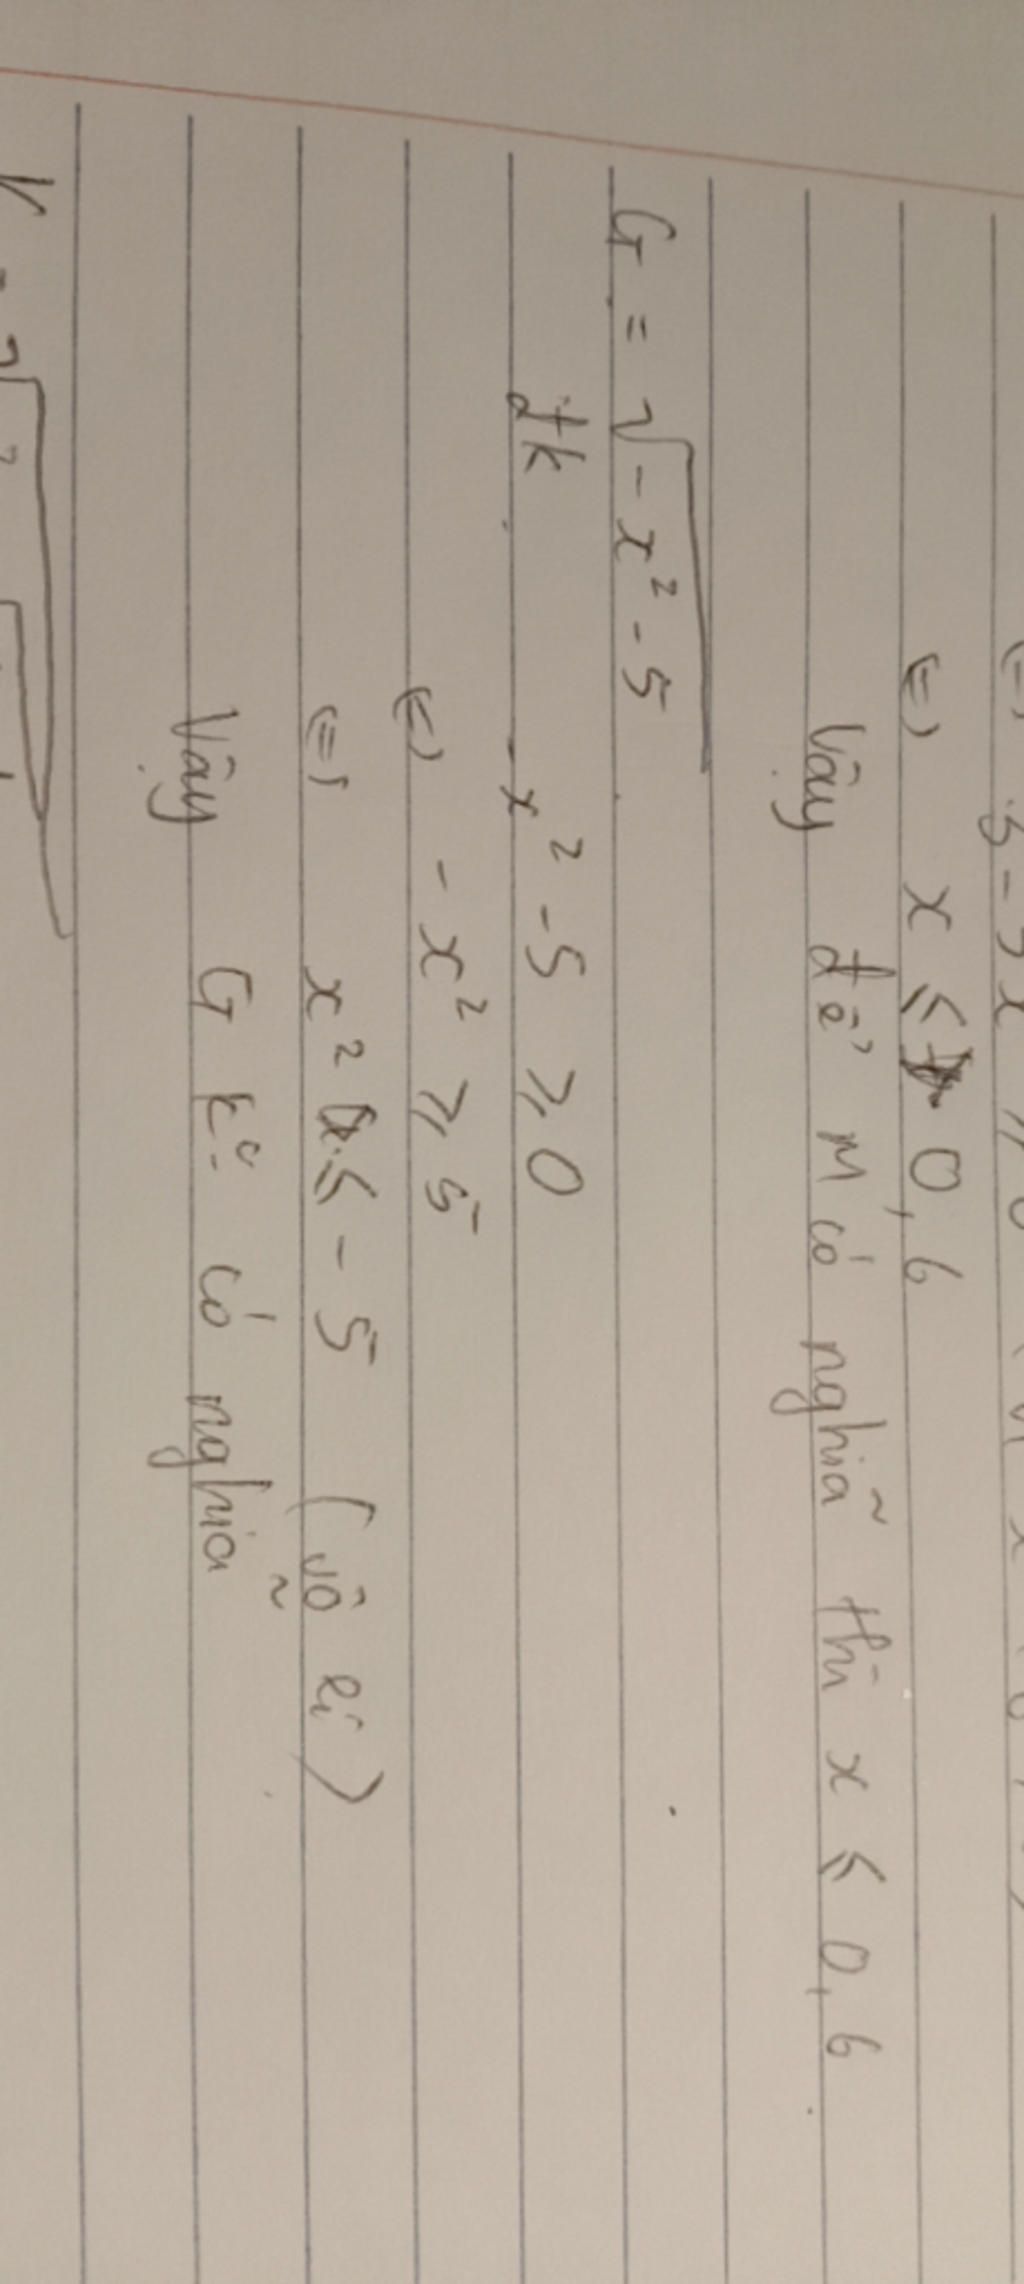 (=) x ≤ 0,6
Vậy để M có nghĩa thì x ≤ 0,6
G = √-x² - 5
đk -x² - 5 ≥ 0
(=) -x² ≥ 5
(=) x² ≤ -5 (vô lí)
Vậy G k° có nghĩa